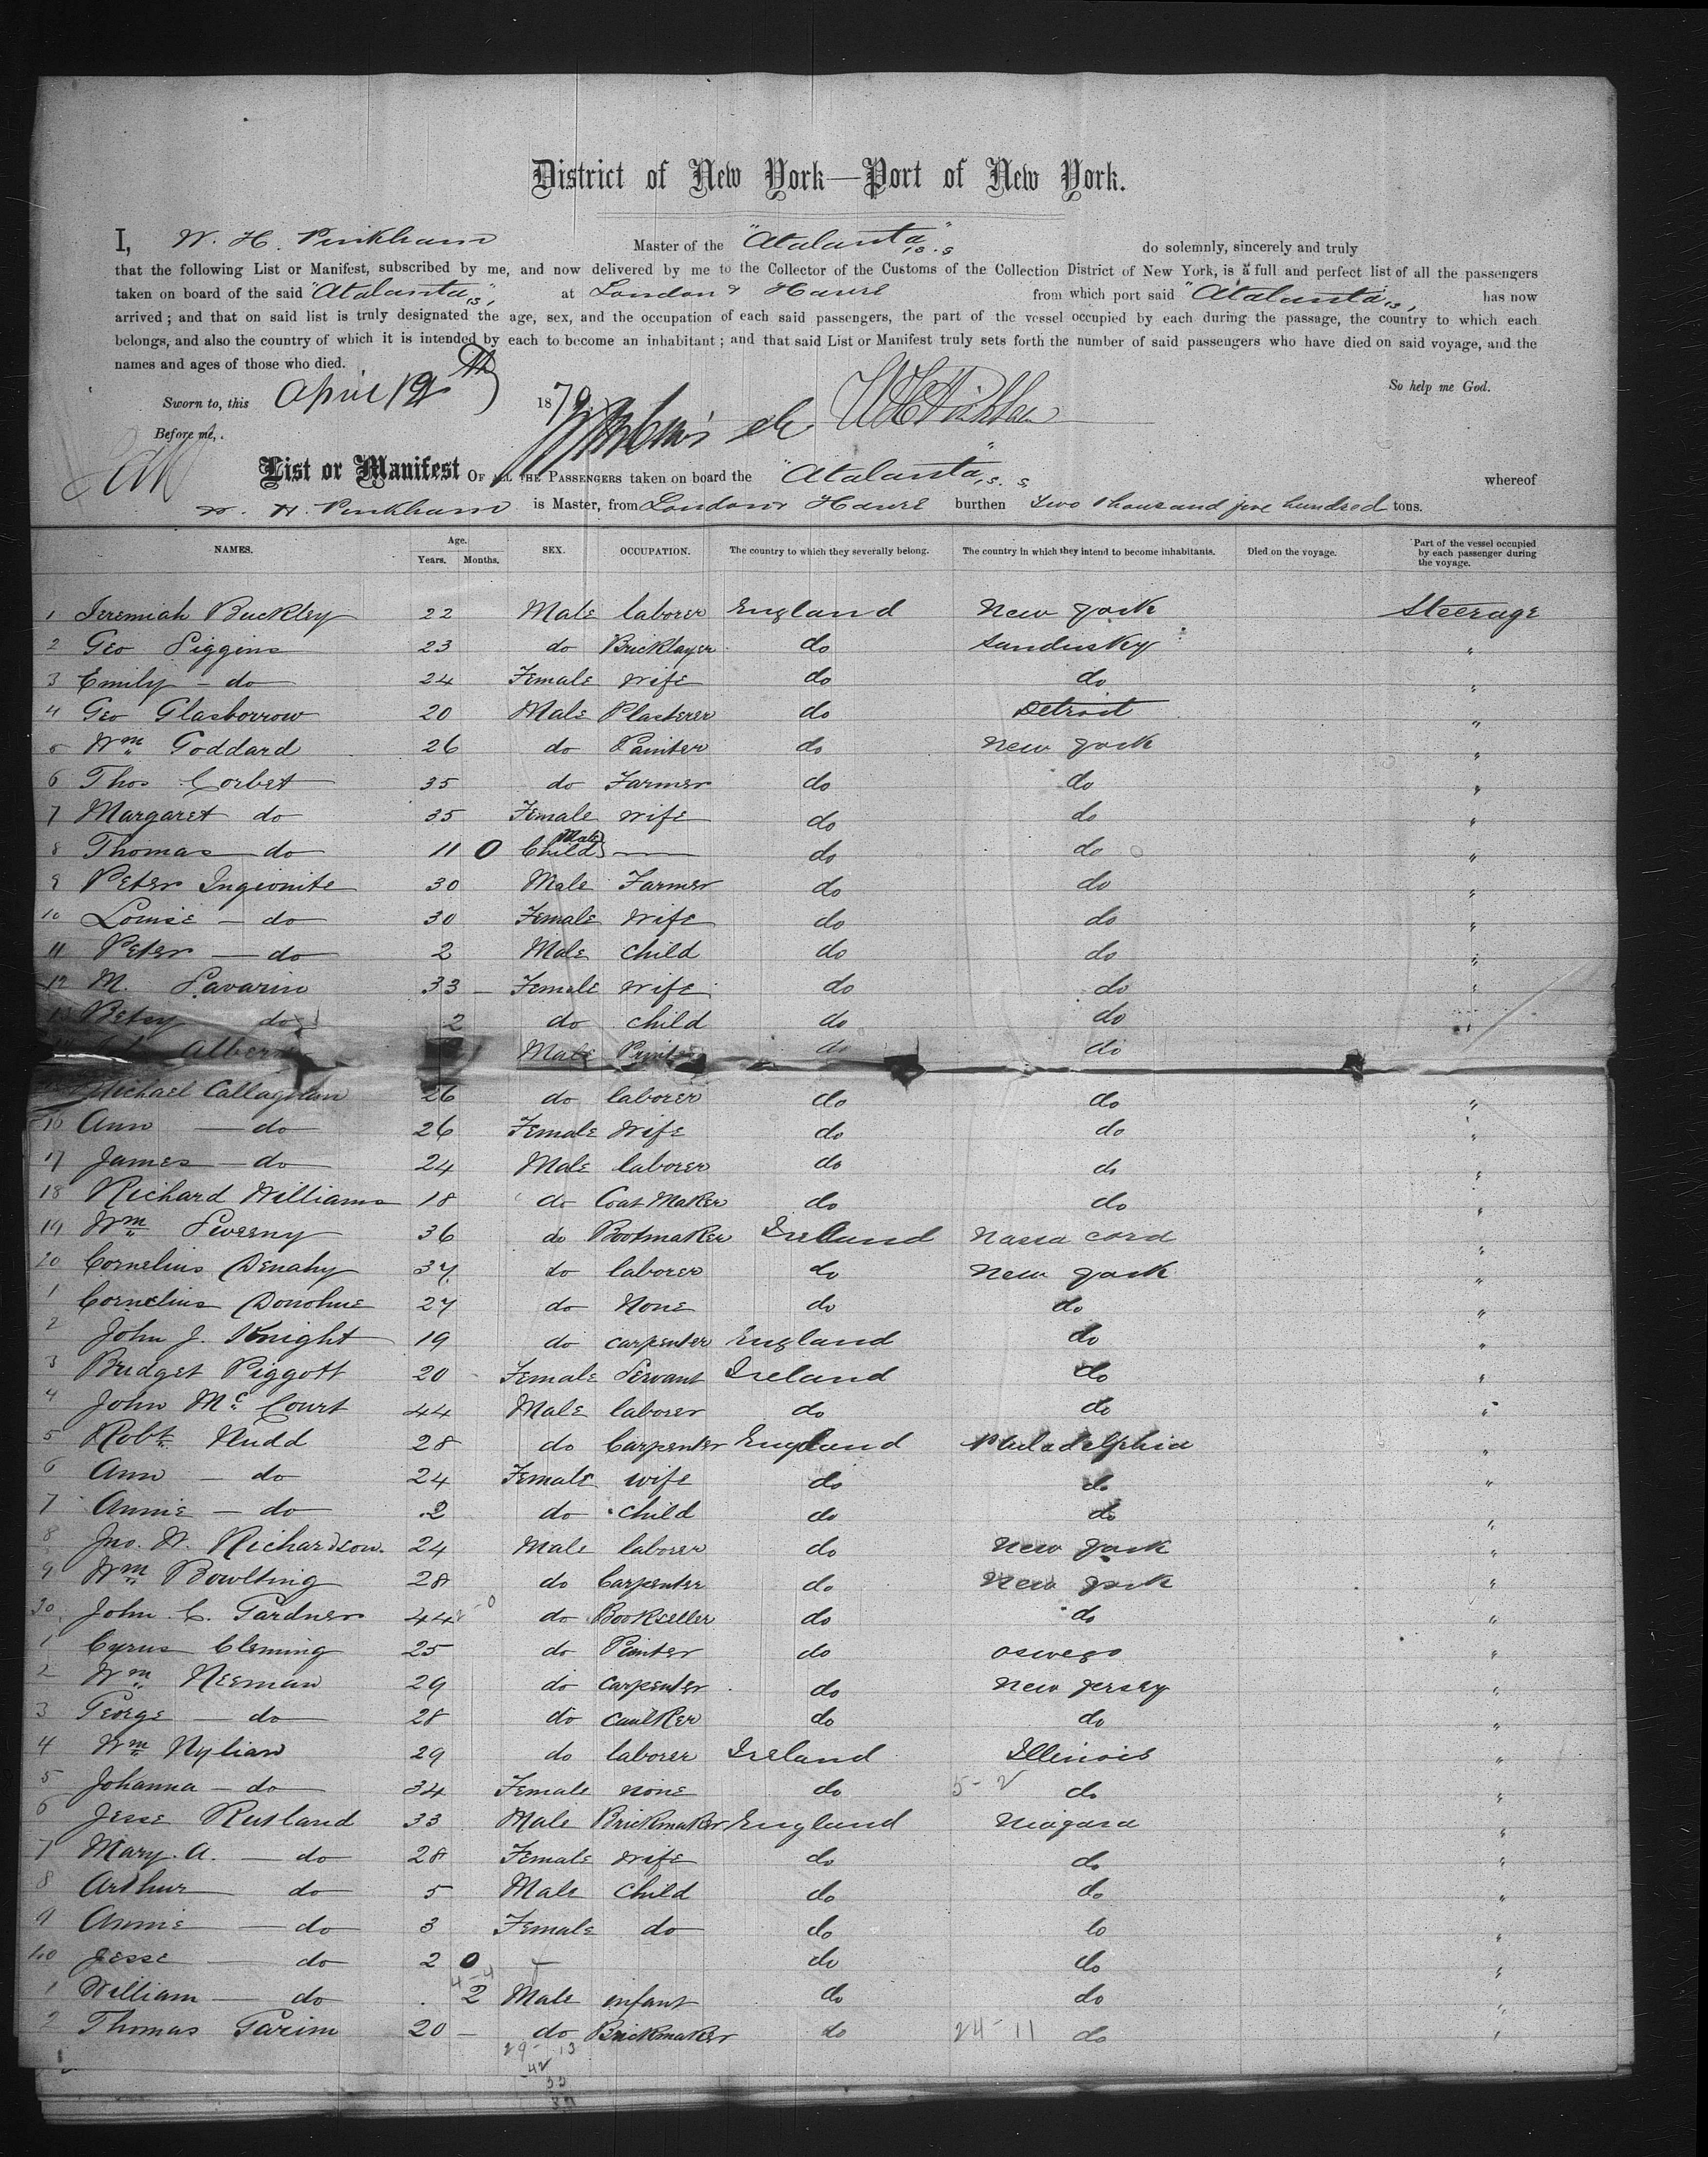 District of New York—Port of New York.
I, W. H. Pinkham Master of the "Atalanta" S.S. do solemnly, sincerely and truly
that the following List or Manifest, subscribed by me, and now delivered by me to the Collector of the Customs of the Collection District of New York, is a full and perfect list of all the passengers
taken on board of the said "Atalanta", at London & Havre from which port said "Atalanta", has now
arrived; and that on said list is truly designated the age, sex, and the occupation of each said passengers, the part of the vessel occupied by each during the passage, the country to which each
belongs, and also the country of which it is intended by each to become an inhabitant; and that said List or Manifest truly sets forth the number of said passengers who have died on said voyage, and the
names and ages of those who died.
So help me God.
Sworn to, this April 19th 1870
Before me,
List or Manifest OF ALL THE PASSENGERS taken on board the "Atalanta" S.S. whereof
W. H. Pinkham is Master, from London & Havre burthen Two thousand five hundred tons.
NAMES. Age. Years. Months. SEX. OCCUPATION. The country to which they severally belong. The country in which they intend to become inhabitants. Died on the voyage. Part of the vessel occupied by each passenger during the voyage.
1 Jeremiah Buckley 22 Male laborer England New York Steerage
2 Geo Siggins 23 do Bricklayer do Sandusky "
3 Emily - do 24 Female Wife do do "
4 Geo Glasborrow 20 Male Plasterer do Detroit "
5 Wm Goddard 26 do Painter do New York "
6 Thos Corbet 35 do Farmer do do "
7 Margaret do 35 Female Wife do do "
8 Thomas do 11 0 Child Male — do do "
9 Peter Ingeonite 30 Male Farmer do do "
10 Louise - do 30 Female Wife do do "
11 Peter - do 2 Male Child do do "
12 M. Savarin 33 - Female Wife do do "
13 Betsy do 2 do child do do "
Albert Male do do
Michael Callaghan 26 do laborer do do "
16 Ann - do 26 Female Wife do do "
17 James - do 24 Male laborer do do "
18 Richard Williams 18 do Coat Maker do do "
19 Wm Sweeny 36 do Bootmaker Ireland "
20 Cornelius Denahy 37 do laborer do New York "
1 Cornelius Donohue 27 do None do do "
2 John J. Knight 19 do carpenter England do "
3 Bridget Piggott 20 Female Servant Ireland do "
4 John McCourt 44 Male laborer do do "
5 Robt. Nudd 28 do Carpenter England Philadelphia "
6 Ann - do 24 Female wife do do "
7 Annie - do 2 do child do do "
8 Jno. W. Richardson. 24 Male laborer do New York "
9 Wm Bowlting 28 do Carpenter do New York "
30 John C. Gardner 44 do Bookseller do do "
1 Cyrus Cleming 25 do Painter do Oswego "
2 Wm Neeman 29 do carpenter do New Jersey "
3 George - do 28 do caulker do do "
4 Wm Nylian 29 do laborer Ireland Illinois "
5 Johanna - do 34 Female none do do "
6 Jesse Rutland 33 Male Brickmaker England Niagara "
7 Mary A. - do 28 Female Wife do do "
8 Arthur do 5 Male Child do do "
9 Annie - do 3 Female do do do "
40 Jesse - do 2 0 do do "
1 William - do 2 Male infant do do "
2 Thomas Garim 20 - do Brickmaker do 24-11 do "
29-13
42